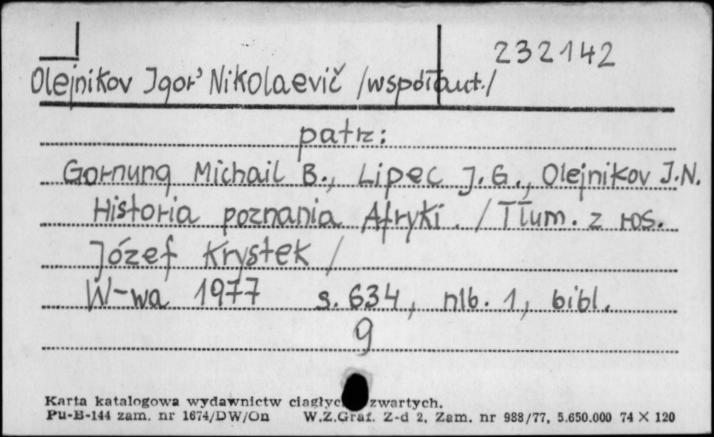 232142
Olejnikov Jgor' Nikolaevič /współaut./
patrz:
Gornung Michail B., Lipec J.G., Olejnikov J.N.
Historia poznania Afryki. /Tłum. z ros.
Józef Krystek /
W-wa 1977 s. 634, nlb. 1, bibl.
9
Karta katalogowa wydawnictw zwartych.
Pu-B-144 zam. nr 1674/DW/On W.Z.Graf. Z-d 2, Zam. nr 988/77, 5.650.000 74 X 120